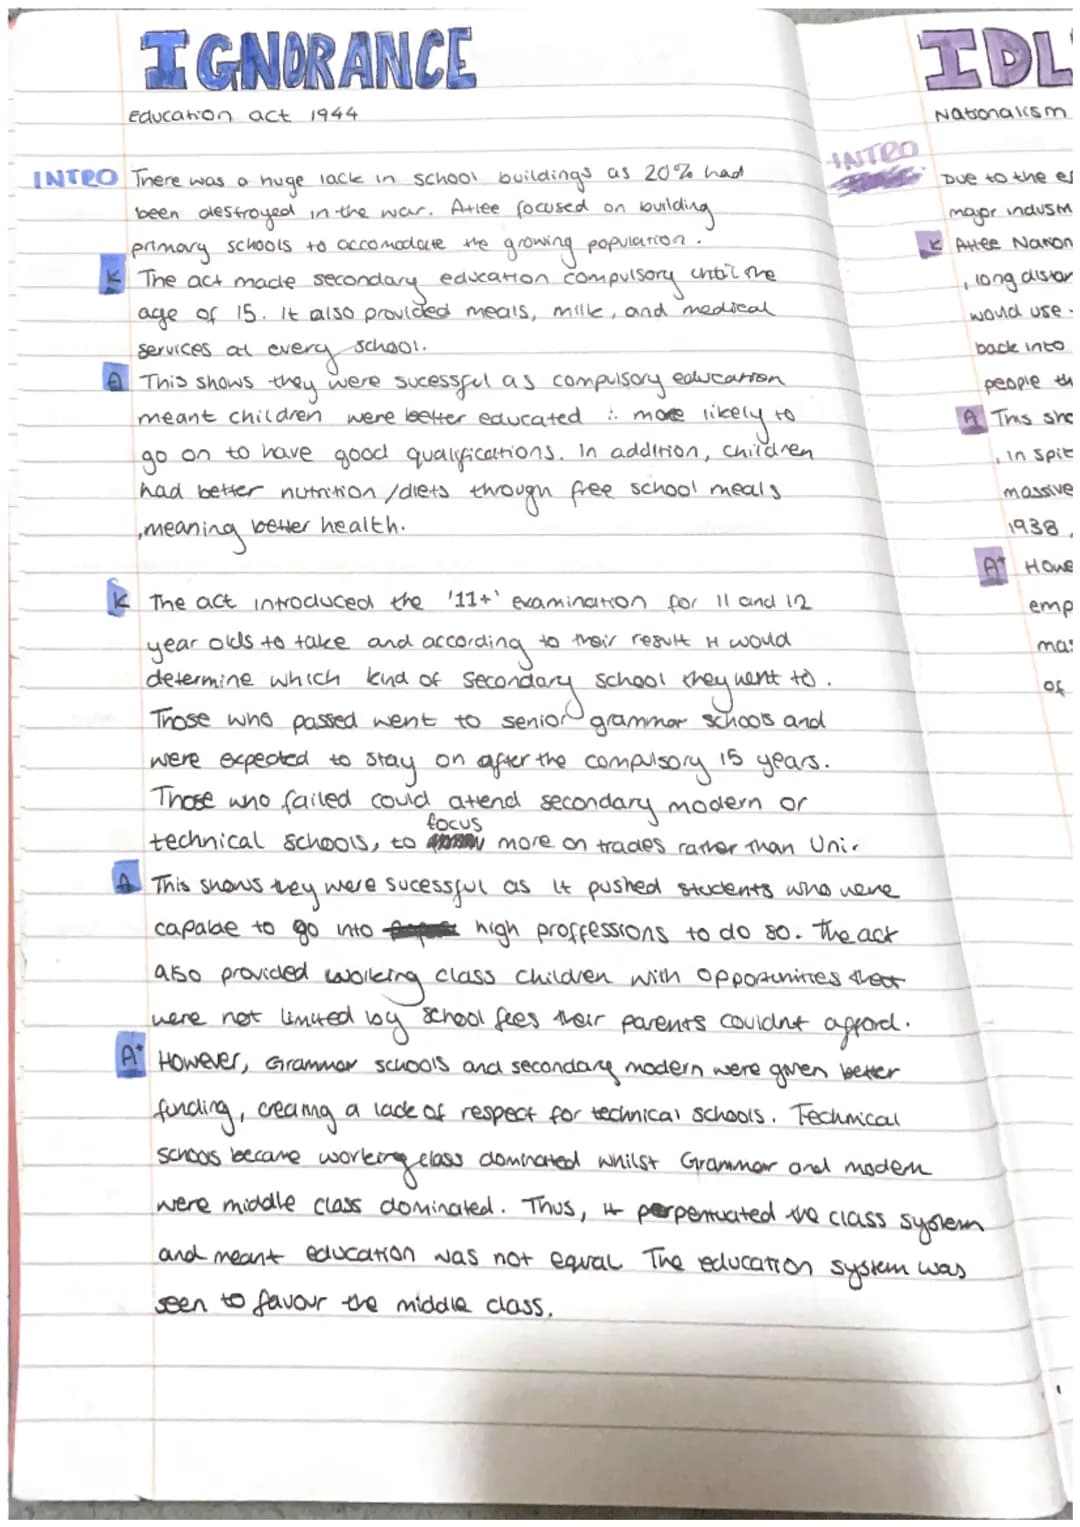 IGNORANCE
Education act 1944
INTRO There was a huge lack in school buildings as 20% had
been destroyed in the war. Attlee focused on building
primary schools to accomodate the growing population.
K The act made secondary education compulsory until the
age of 15. It also provided meals, milk, and medical
services at every school.
A This shows they were sucessful as compulsory education
meant children were better educated ∴ more likely to
go on to have good qualifications. In addition, children
had better nutrition/diets through free school meals
, meaning better health.
K The act introduced the '11+' examination for 11 and 12
year olds to take and according to their result it would
determine which kind of secondary school they went to.
Those who passed went to senior grammar schools and
were expected to stay on after the compulsory 15 years.
Those who failed could attend secondary modern or
technical schools, to focus more on trades rather than Uni.
A This shows they were sucessful as it pushed students who were
capable to go into high proffessions to do so. The act
also provided working class children with opportunities that
were not limited by school fees their parents couldnt afford.
A+ However, Grammar schools and secondary modern were given better
funding, creating a lack of respect for technical schools. Technical
schools became working class dominated whilst Grammar and modern
were middle class dominated. Thus, it perpentuated the class system
and meant education was not equal. The education system was
seen to favour the middle class.
IDL
Nationalism
INTRO
Due to the
major
K
, long
would use
back into
people
A This
, in
massive
1938,
A+
emp
of